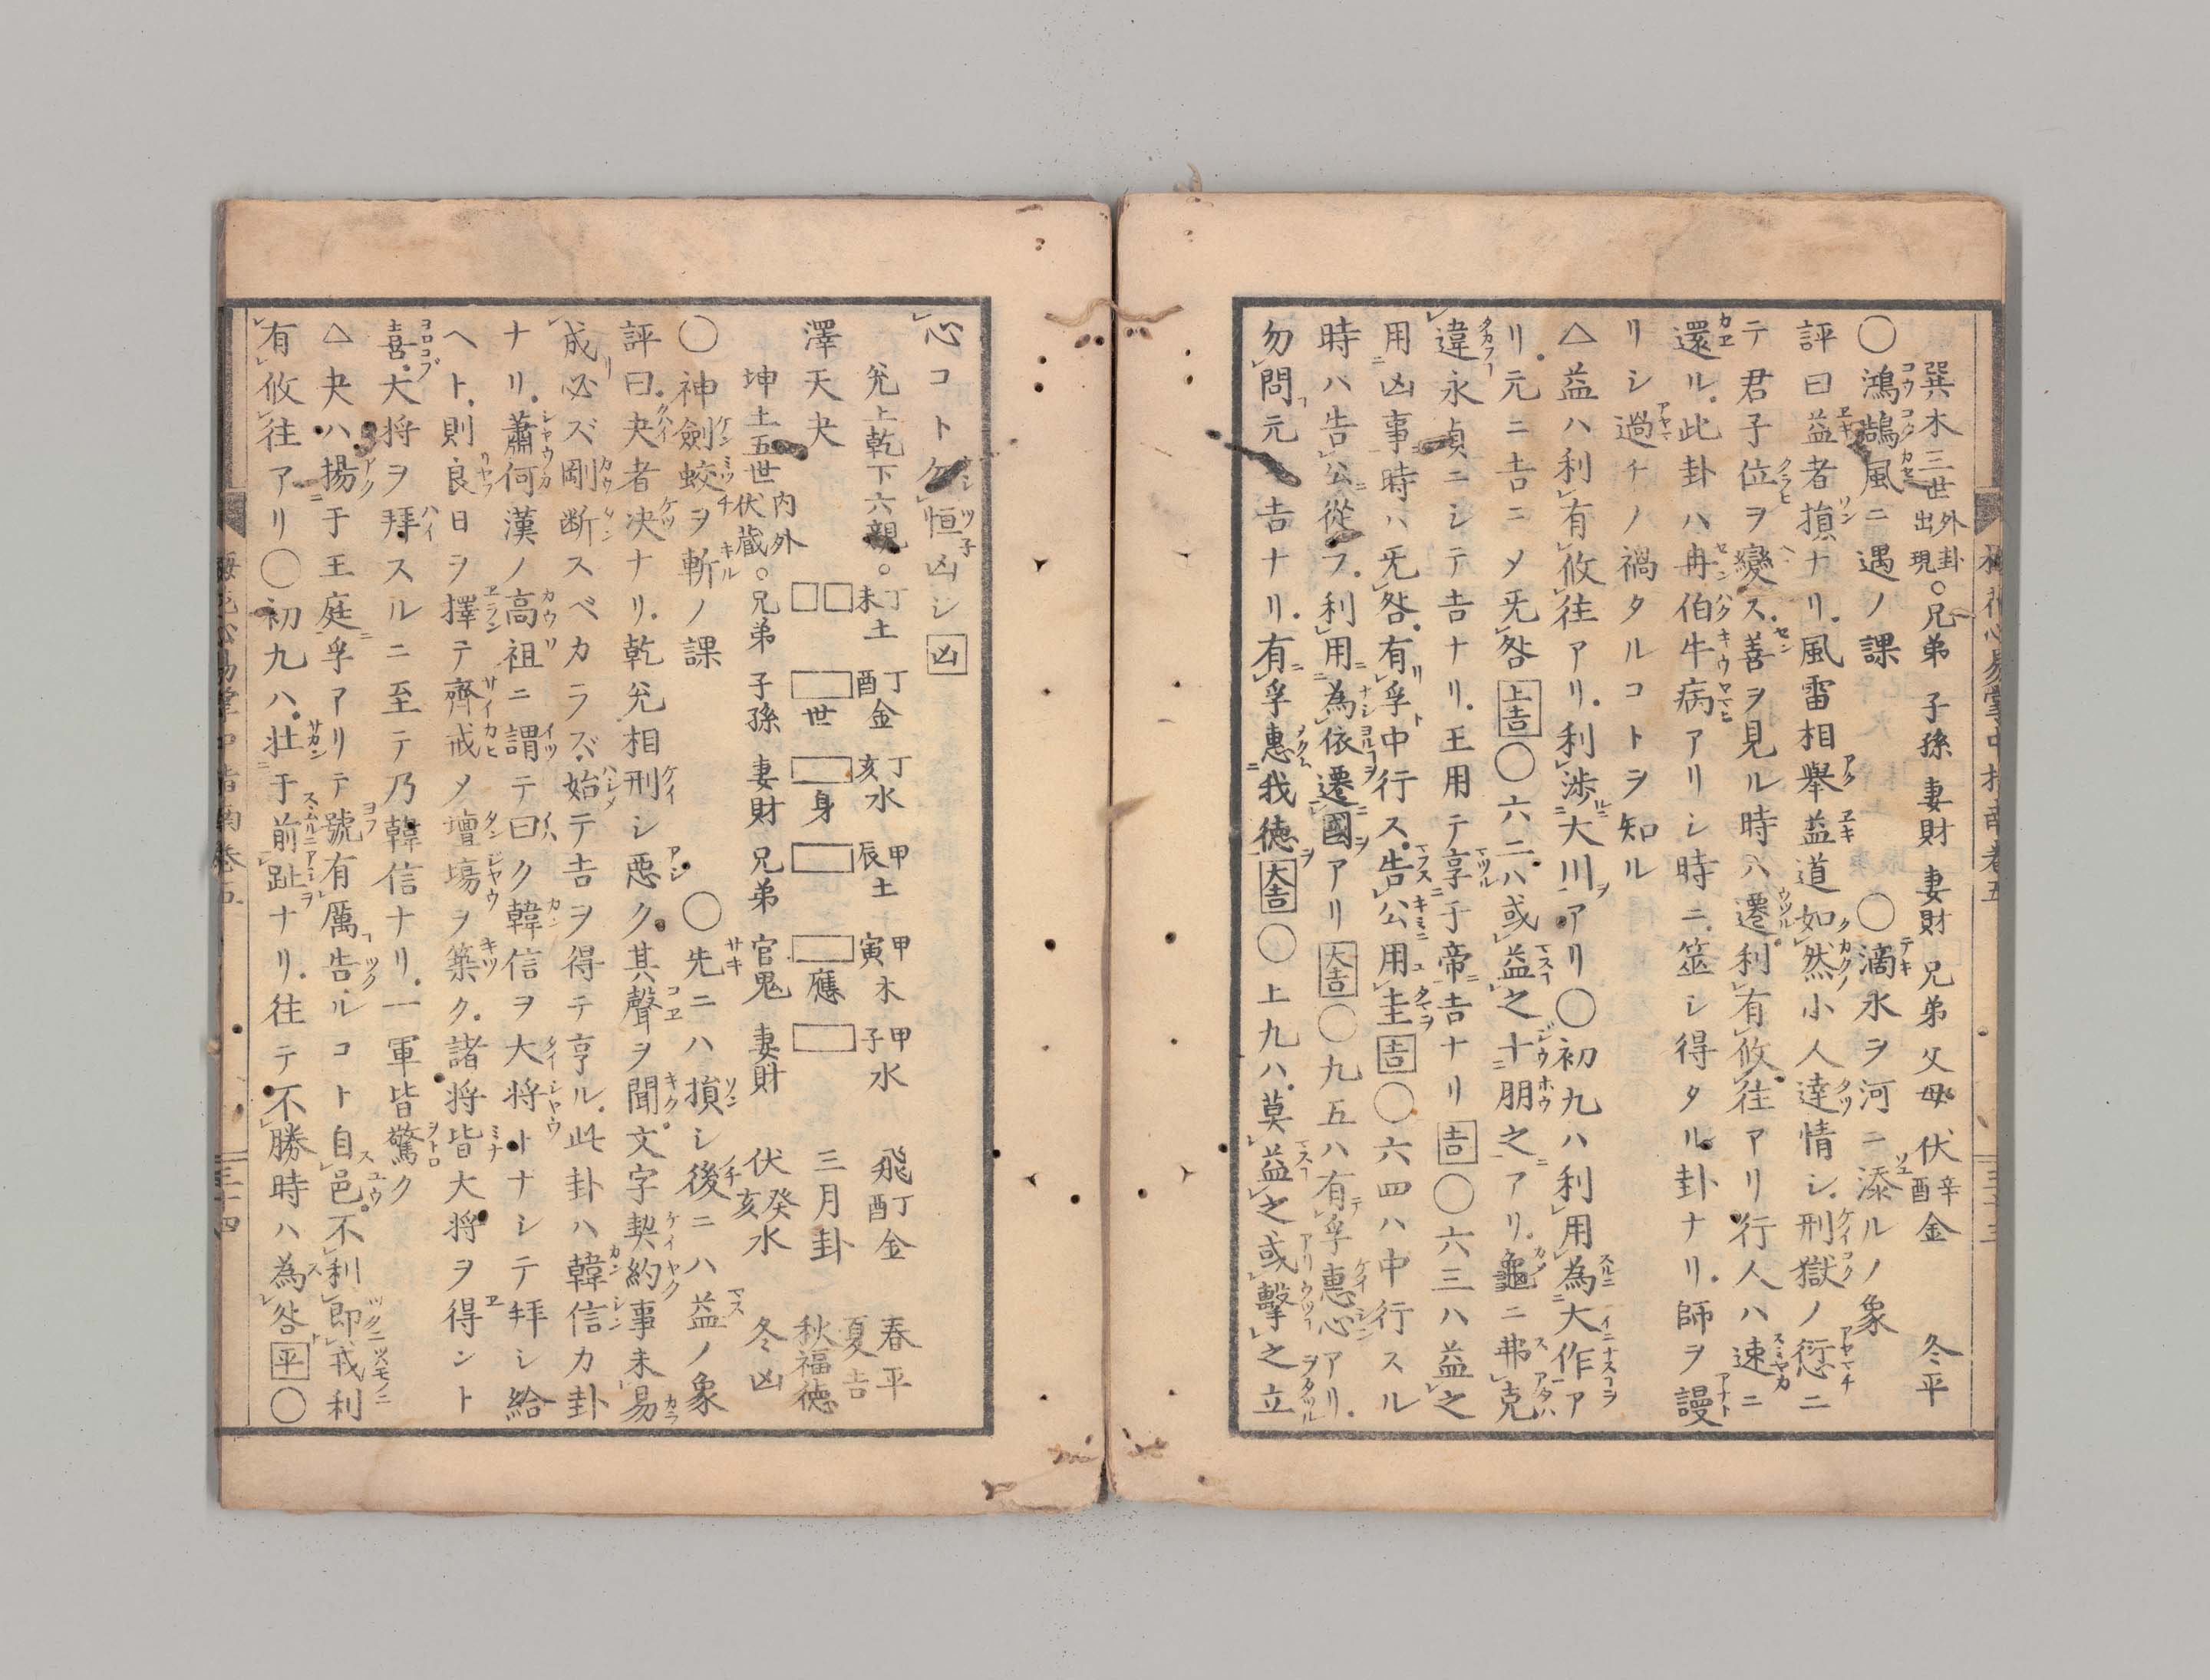 巽木三世外卦出現○兄弟 子孫 妻財 妻財 兄弟 父母 伏辛酉金 冬平
○鴻鵠風ニ遇ノ課 ○滴水ヲ河ニ添ルノ象
評曰益者損ナリ風雷相舉益道如然小人達情シ刑獄ノ愆ニ
テ君子位ヲ變ス善ヲ見ル時ハ遷利有攸往アリ行人ハ速ニ
還ル此卦ハ冉伯牛病アリシ時ニ筮シ得タル卦ナリ師ヲ謾
リシ過チノ禍タルコトヲ知ル
△益ハ利有攸往アリ利渉大川アリ○初九ハ利用為大作ア
リ元ニ吉ニメ旡咎上吉○六二ハ或益之十朋之アリ龜ニ弗克
違永貞ニシテ吉ナリ王用テ享于帝吉ナリ吉○六三ハ益之
用凶事時ハ旡咎有孚中行ス告公用圭吉○六四ハ中行スル
時ハ告公從フ利用為依遷國アリ大吉○九五ハ有孚惠心アリ
勿問元吉ナリ有孚惠我德大吉○上九ハ莫益之或擊之立
三十三
心コトケ恒凶シ凶
兌上乾下六親○丁未土 丁酉金 丁亥水 甲辰土 甲寅木 甲子水 飛丁酉金 春平
澤天夬 世 身 應 三月卦 夏吉 秋福德
坤土五世内外伏蔵○兄弟 子孫 妻財 兄弟 官鬼 妻財 伏癸亥水 冬凶
○神劍蛟ヲ斬ノ課 ○先ニハ損シ後ニハ益ノ象
評曰夬者決ナリ乾兌相刑シ惡ク其聲ヲ聞文字契約事未易
成必ズ剛断スベカラズ始テ吉ヲ得テ亨ル此卦ハ韓信カ卦
ナリ蕭何漢ノ高祖ニ謂テ曰ク韓信ヲ大将トナシテ拜シ給
ヘト則良日ヲ擇テ齊戒メ壇塲ヲ築ク諸将皆大将ヲ得ント
喜大将ヲ拜スルニ至テ乃韓信ナリ一軍皆驚ク
△夬ハ揚于王庭孚アリテ號有厲告ルコト自邑不利即戎利
有攸往アリ○初九ハ壮于前趾ナリ往テ不勝時ハ為咎平○
三十四